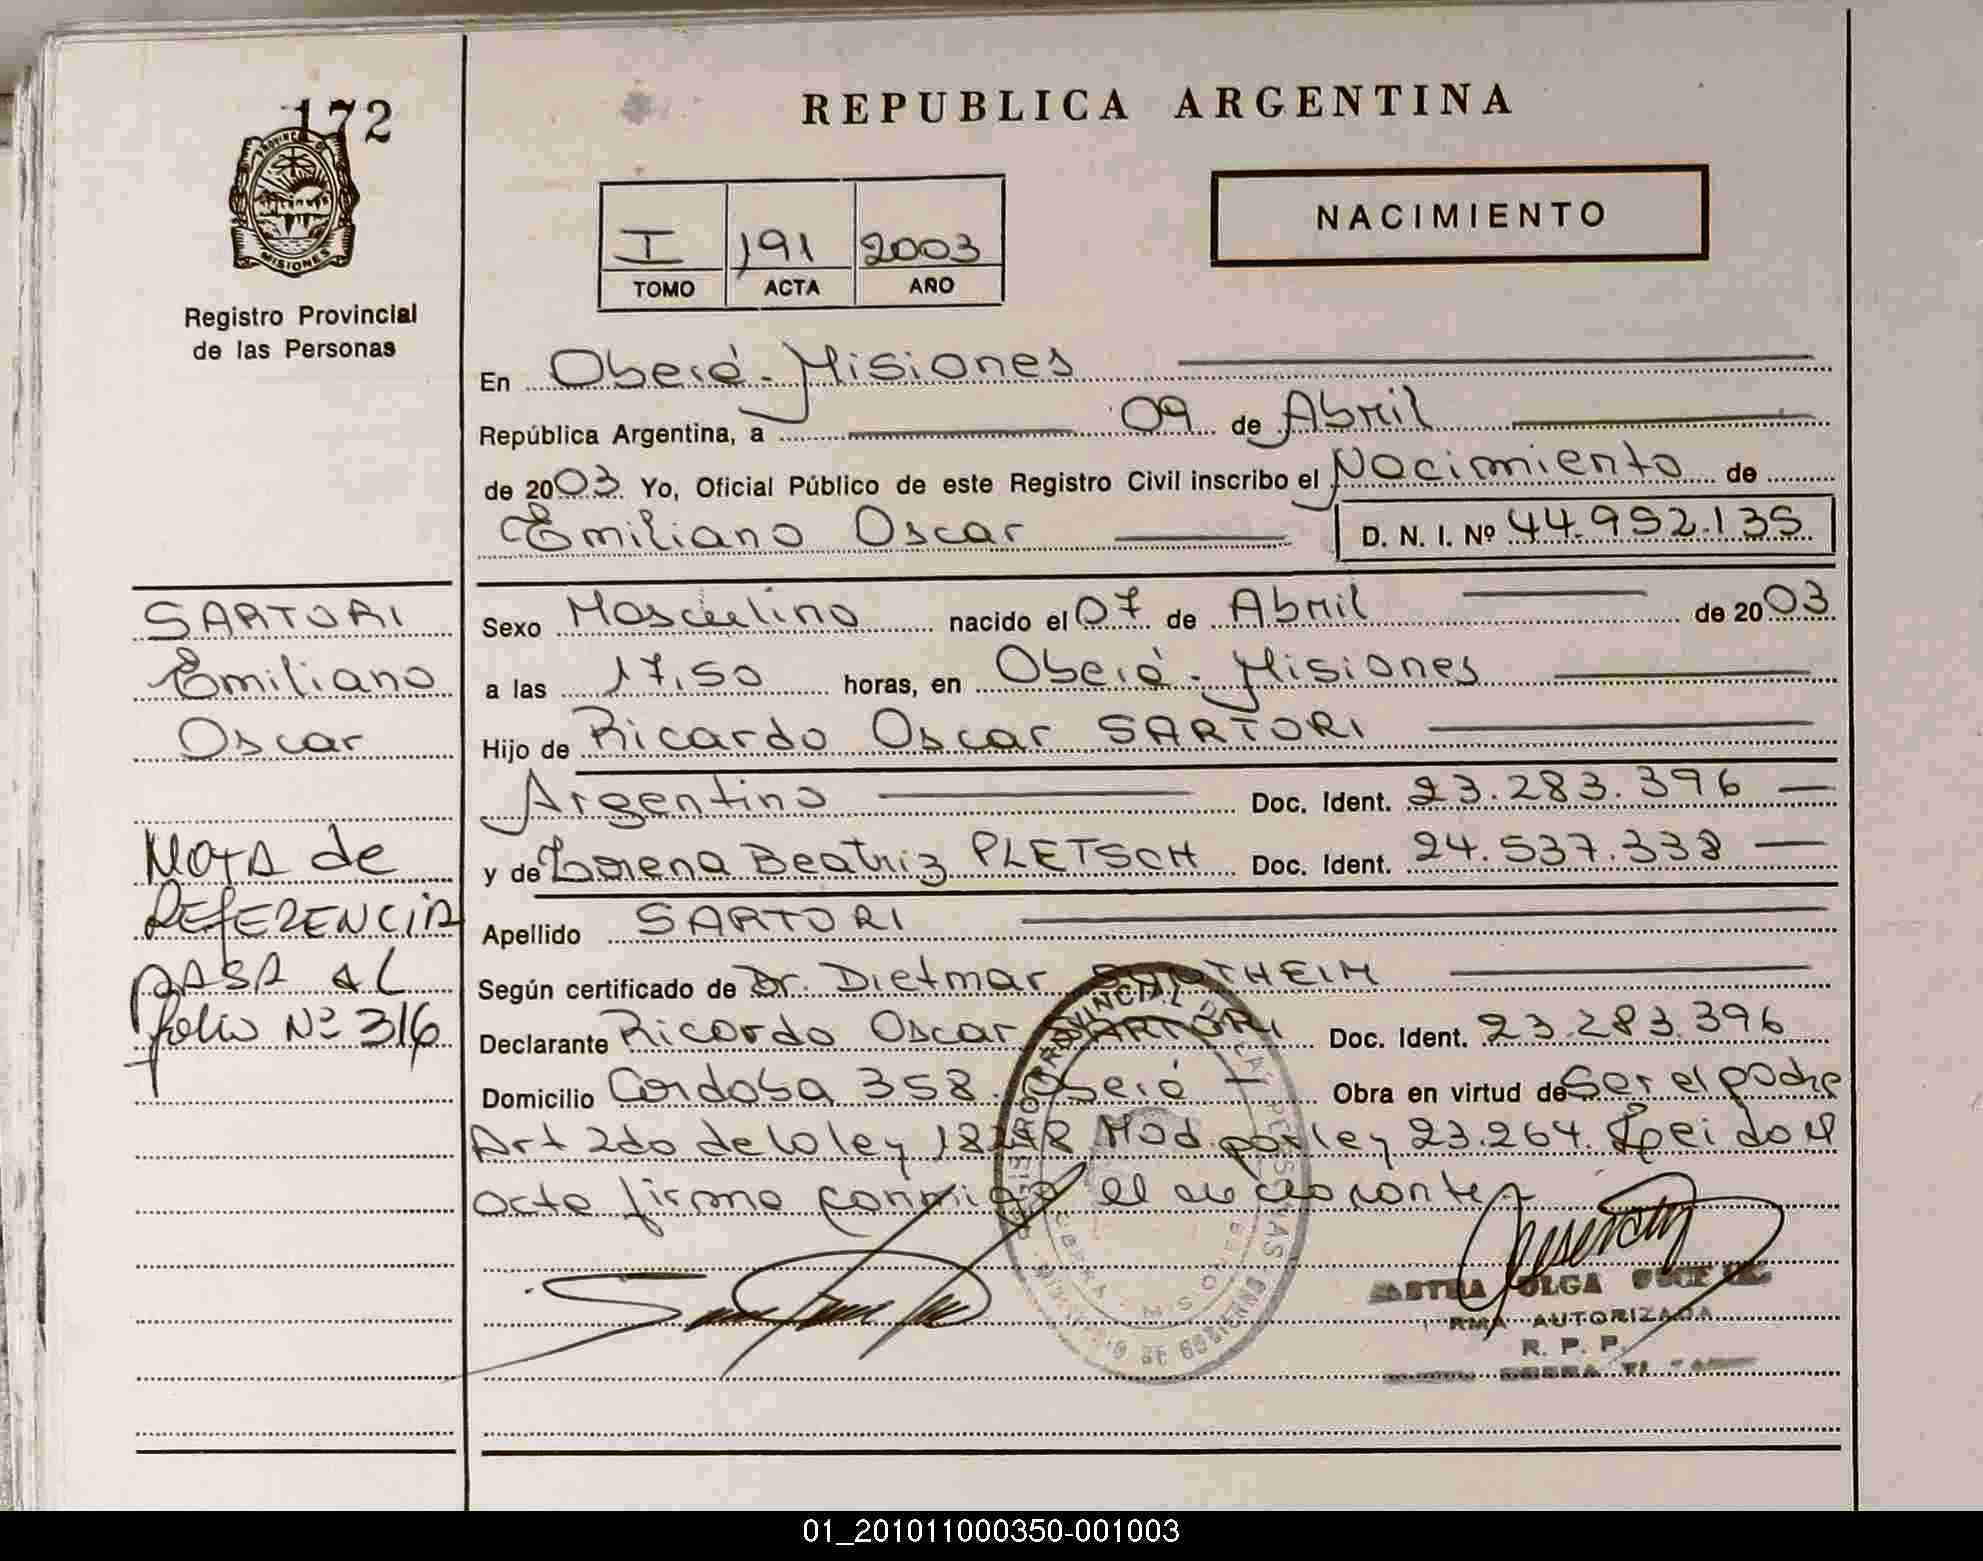 172
PROVINCIA DE
MISIONES
Registro Provincial
de las Personas
REPUBLICA ARGENTINA
NACIMIENTO
I 191 2003
TOMO ACTA AÑO
En Oberá - Misiones
República Argentina, a 09 de Abril
de 2003 Yo, Oficial Público de este Registro Civil inscribo el Nacimiento de
Emiliano Oscar D. N. I. Nº 44.992.135
SARTORI
Emiliano
Oscar
NOTA de
REFERENCIA
PASA al
folio Nº 316
Sexo Masculino nacido el 07 de Abril de 2003
a las 17,50 horas, en Oberá - Misiones
Hijo de Ricardo Oscar SARTORI
Argentino Doc. Ident. 23.283.396
y de Lorena Beatriz PLETSCH Doc. Ident. 24.537.338
Apellido SARTORI
Según certificado de Dr. Dietmar
Declarante Ricardo Oscar SARTORI Doc. Ident. 23.283.396
Domicilio Cordoba 358. Oberá Obra en virtud de Ser el padre
Art 2do de la ley 18248 Mod. por ley 23.264. Leida el
acta firma conmigo el declarante
REGISTRO PROVINCIAL DE LAS PERSONAS
OBERA - MISIONES
MINISTERIO DE GOBIERNO
OLGA
AUTORIZADA
R. P. P.
01_201011000350-001003